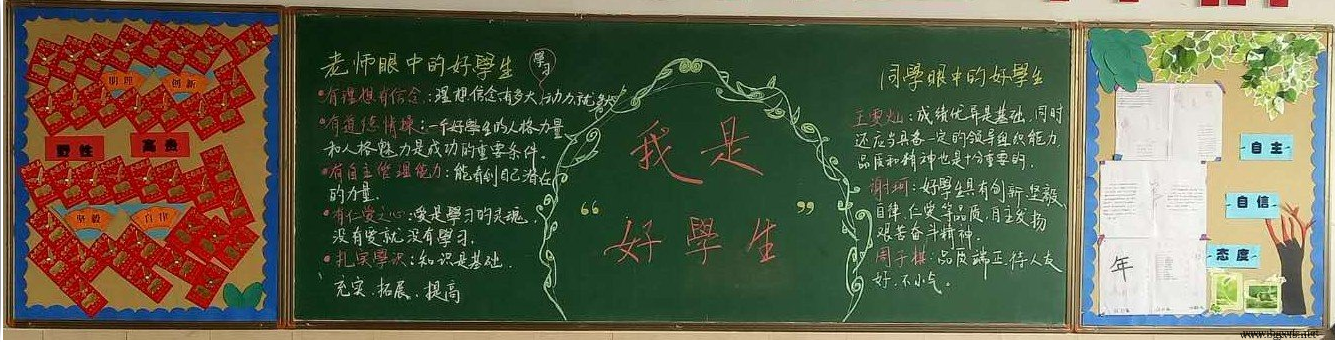 明理
创新
野性
高贵
坚毅
自律
老师眼中的好學生
學习
•有理想有信念:理想信念有多大,动力就多大
•有道德情操:一个好學生的人格力量
和人格魅力是成功的重要条件.
•有自主管理能力:能看到自己潜在
的力量.
•有仁爱之心:爱是學习的灵魂,
没有爱就没有學习.
•扎实學识:知识是基础.
充实、拓展、提高
我是
“好學生”
同学眼中的好學生
成绩优异是基础,同时
还应当具备一定的领导组织能力,
品质和精神也是十分重要的.
谢珂:好學生具有创新、坚毅
自律、仁爱等品质,自主发扬
艰苦奋斗精神.
周子棋:品质端正,待人友
好,不小气。
自主
自信
态度
年